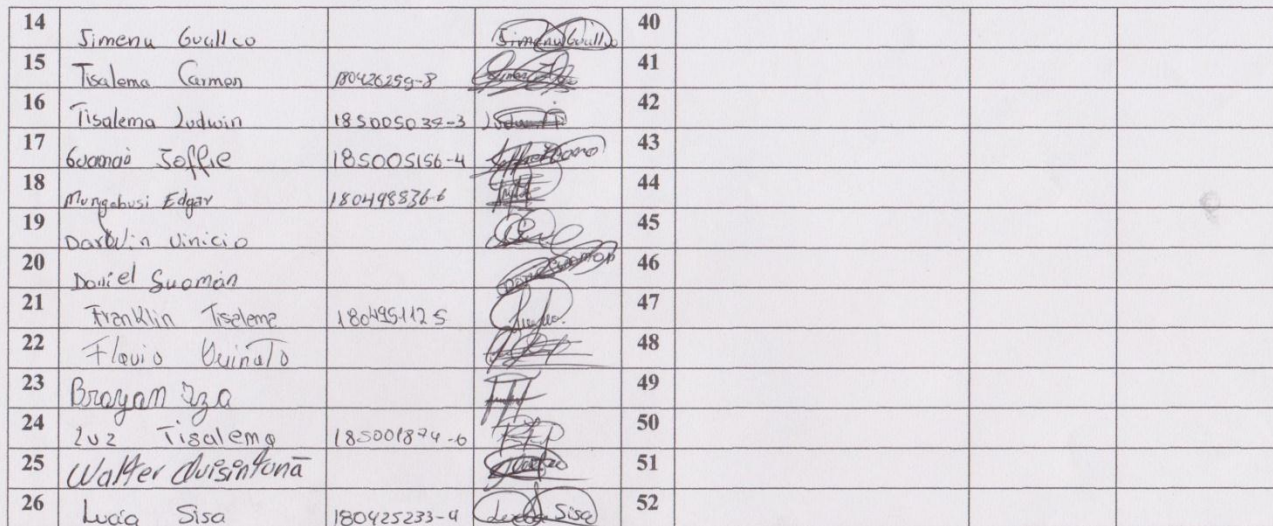 14 Simenu Guallco Simenu Guallco 40
15 Tisalema Carmen 180426259-8 41
16 Tisalema Ludwin 185005034-3 42
17 Guamaó Joffie 185005156-4 43
18 Mungabusi Edgar 180498536-6 44
19 Darwin Vinicio 45
20 Daniel Guamán 46
21 Franklin Tisalema 180495112 5 47
22 Flavio Quinato 48
23 Brayan Iza 49
24 Luz Tisalema 185001874-6 50
25 Walter Quisintuña 51
26 Lucia Sisa 180425233-4 Lucia Sisa 52